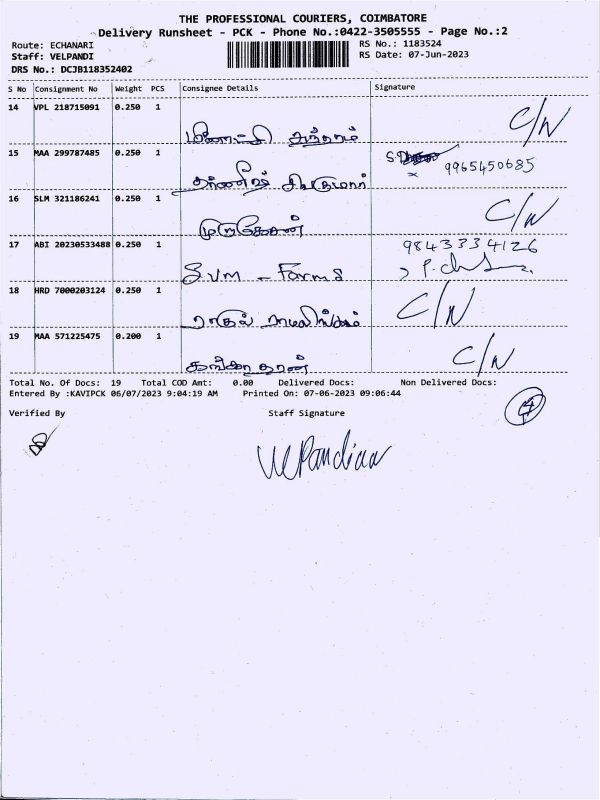 THE PROFESSIONAL COURIERS, COIMBATORE
Delivery Runsheet - PCK - Phone No.:0422-3505555 - Page No.:2
Route: ECHANARI RS No.: 1183524
Staff: VELPANDI RS Date: 07-Jun-2023
DRS No.: DCJB118352402
S No Consignment No Weight PCS Consignee Details Signature
14 VPL 218715091 0.250 1 C/N
15 MAA 299787485 0.250 1 9965450685
16 SLM 321186241 0.250 1 முருகேசன் C/N
17 ABI 20230533488 0.250 1 SVM - Forms 9843334126
18 HRD 7000203124 0.250 1 ராகுல் ராமலிங்கம் C/N
19 MAA 571225475 0.200 1 C/N
Total No. Of Docs: 19 Total COD Amt: 0.00 Delivered Docs: Non Delivered Docs:
Entered By :KAVIPCK 06/07/2023 9:04:19 AM Printed On: 07-06-2023 09:06:44
Verified By Staff Signature